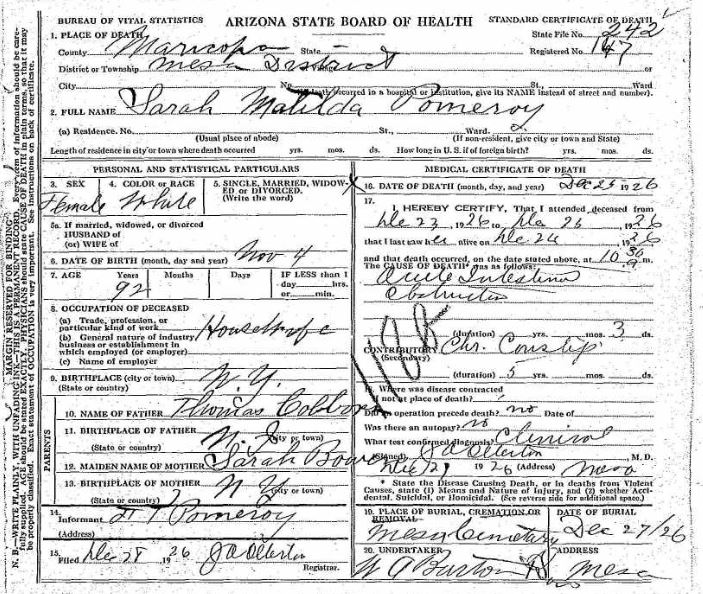 BUREAU OF VITAL STATISTICS ARIZONA STATE BOARD OF HEALTH STANDARD CERTIFICATE OF DEATH
1. PLACE OF DEATH State File No. 242
County Maricopa State - Registered No. 147
District or Township Mesa District or
City No. St., Ward
(If death occurred in a hospital or institution, give its NAME instead of street and number).
2. FULL NAME Sarah Matilda Pomeroy
(a) Residence. No. St., Ward.
(Usual place of abode) (If non-resident, give city or town and State)
Length of residence in city or town where death occurred yrs. mos. ds. How long in U. S. if of foreign birth? yrs. mos. ds.
PERSONAL AND STATISTICAL PARTICULARS
3. SEX 4. COLOR or RACE 5. SINGLE, MARRIED, WIDOWED or DIVORCED.
(Write the word)
Female White
5a. If married, widowed, or divorced
HUSBAND of
(or) WIFE of
6. DATE OF BIRTH (month, day and year) Nov 4
7. AGE Years Months Days IF LESS than 1
day hrs.
or min.
92
8. OCCUPATION OF DECEASED
(a) Trade, profession, or
particular kind of work Housewife
(b) General nature of industry,
business or establishment in
which employed (or employer)
(c) Name of employer
9. BIRTHPLACE (city or town) N.Y.
(State or country)
PARENTS
10. NAME OF FATHER Thomas Colborn
11. BIRTHPLACE OF FATHER
(city or town)
(State or country)
12. MAIDEN NAME OF MOTHER Sarah
13. BIRTHPLACE OF MOTHER N Y
(city or town)
(State or country)
14.
Informant Pomeroy
(Address)
15.
Filed Dec 28 1926 Registrar.
MEDICAL CERTIFICATE OF DEATH
16. DATE OF DEATH (month, day, and year) Dec 25 1926
17.
I HEREBY CERTIFY, That I attended deceased from
Dec 23, 1926 to Dec 25, 1926
that I last saw her alive on Dec 24, 1926
and that death occurred, on the date stated above, at 10 30
The CAUSE OF DEATH was as follows:
Acute Intestinal
Obstruction
(duration) yrs. mos. 3 ds.
CONTRIBUTORY Chr. Constip
(Secondary)
(duration) 5 yrs. mos. ds.
18. Where was disease contracted
if not at place of death?
Did an operation precede death? no Date of
Was there an autopsy? no
What test confirmed diagnosis? Clinical
(Signed) M. D.
1926 (Address) Mesa
* State the Disease Causing Death, or in deaths from Violent
Causes, state (1) Means and Nature of Injury, and (2) whether Accidental, Suicidal, or Homicidal. (See reverse side for additional space).
19. PLACE OF BURIAL, CREMATION OR REMOVAL DATE OF BURIAL
Mesa Cemetary Dec 27/26
20. UNDERTAKER ADDRESS
Burton Mesa
MARGIN RESERVED FOR BINDING
N. B.—WRITE PLAINLY, WITH UNFADING INK—THIS IS A PERMANENT RECORD. Every item of information should be carefully supplied. AGE should be stated EXACTLY. PHYSICIANS should state CAUSE OF DEATH in plain terms, so that it may be properly classified. Exact statement of OCCUPATION is very important. See instructions on back of certificate.